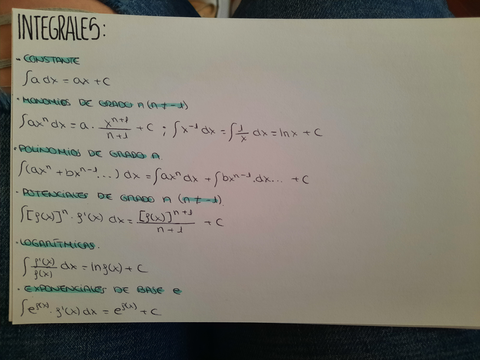 INTEGRALES:
- CONSTANTE
∫a dx = ax + C
- MONOMIOS DE GRADO n (n ≠ -1)
∫axⁿ dx = a · xⁿ⁺¹/n+1 + C ; ∫x⁻¹ dx = ∫1/x dx = ln x + C
- POLINOMIOS DE GRADO n
∫(axⁿ + bxⁿ⁻¹...) dx = ∫axⁿ dx + ∫bxⁿ⁻¹ dx... + C
- POTENCIALES DE GRADO n (n ≠ -1)
∫[f(x)]ⁿ · f'(x) dx = [f(x)]ⁿ⁺¹/n+1 + C
- LOGARÍTMICAS
∫f'(x)/f(x) dx = ln f(x) + C
- EXPONENCIALES DE BASE e
∫e^f(x) · f'(x) dx = e^f(x) + C